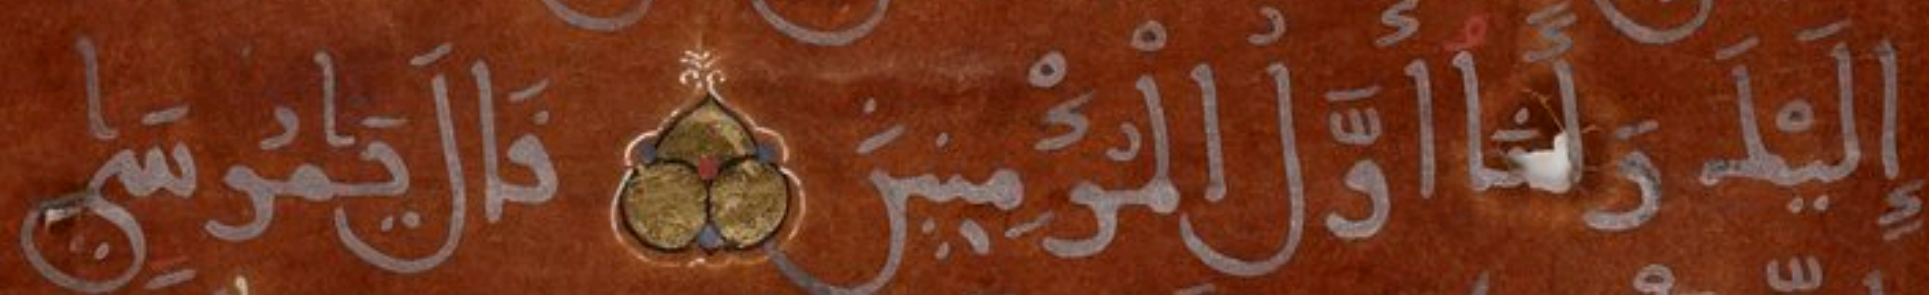 إِلَيْكَ وَأَنَا أَوَّلُ الْمُؤْمِنِينَ قَالَ يَٰمُوسَىٰ